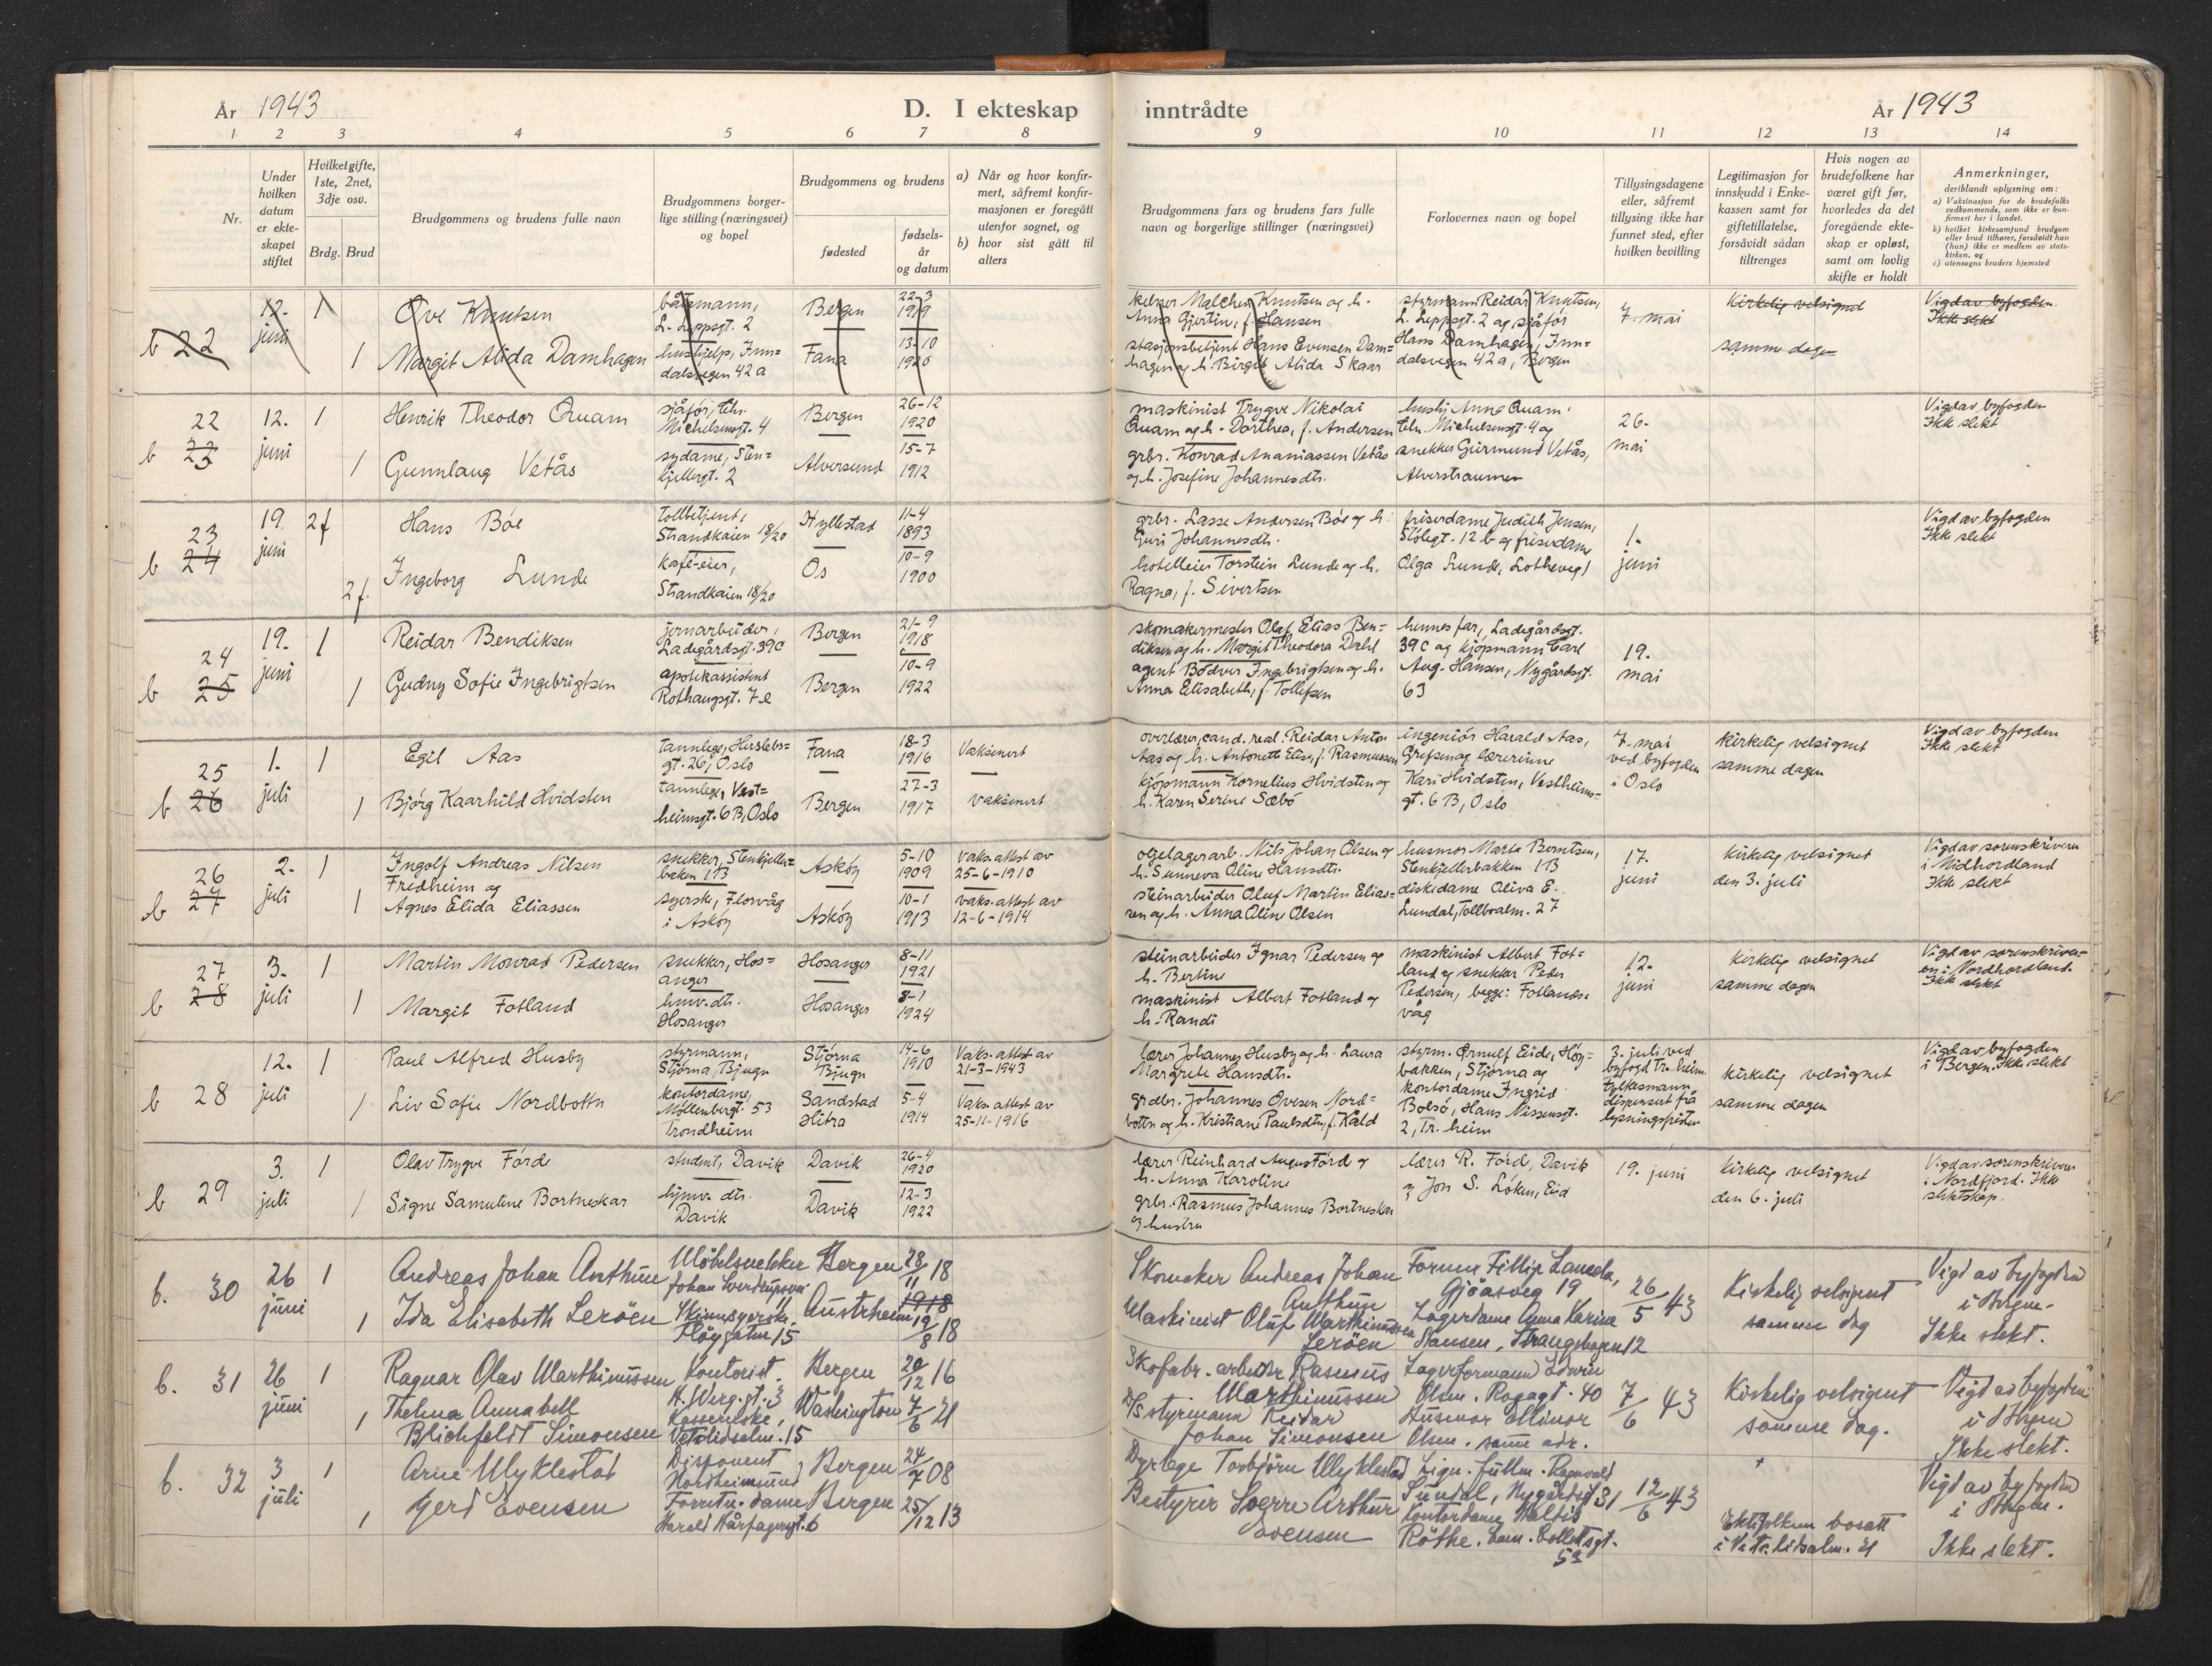 År 1943
D. I ekteskap inntrådte
År 1943
1 2 3 4 5 6 7 8 9 10 11 12 13 14
Nr.
Under
hvilken
datum
er ekte-
skapet
stiftet
Hvilketgifte,
1ste, 2net,
3dje osv.
Brdg. Brud
Brudgommens og brudens fulle navn
Brudgommens borger-
lige stilling (næringsvei)
og bopel
Brudgommens og brudens
fødested
fødsels-
år
og datum
a) Når og hvor konfir-
mert, såfremt konfir-
masjonen er foregått
utenfor sognet, og
b) hvor sist gått til
alters
Brudgommens fars og brudens fars fulle
navn og borgerlige stillinger (næringsvei)
Forlovernes navn og bopel
Tillysingsdagene
eller, såfremt
tillysing ikke har
funnet sted, efter
hvilken bevilling
Legitimasjon for
innskudd i Enke-
kassen samt for
giftetillatelse,
forsåvidt sådan
tiltrenges
Hvis nogen av
brudefolkene har
været gift før,
hvorledes da det
foregående ekte-
skap er opløst,
samt om lovlig
skifte er holdt
Anmerkninger,
deriblandt oplysning om:
a) Vaksinasjon for de brudefolks
vedkommende, som ikke er kon-
firmert her i landet.
b) hvilket kirkesamfund brudgom
eller brud tilhører, forsåvidt han
(hun) ikke er medlem av stats-
kirken, og
c) utensogns bruders hjemsted
b 22
12.
juni
1
1
Ove Knutsen
Margit Alida Damhagen
båtsmann,
L. Leppsgt. 2
hushjelp, Inn=
dalsvegen 42a
Bergen
Fana
22-3
1919
13-10
1920
kelner Melcher Knutsen og h.
Anna Gjertine, f. Hansen
stasjonsbetjent Hans Evensen Dam=
hagen og h. Birgit Alida Skaar
styrmann Reidar Knutsen,
L. Leppsgt. 2 og sjåfør
Hans Damhagen, Inn=
dalsvegen 42a, Bergen
7. mai
Kirkelig velsignet
samme dagen
Vigd av byfogden
Ikke slekt
22
b 23
12.
juni
1
1
Henrik Theodor Quam
Gunnlaug Vetås
sjåfør, Chr.
Michelsensgt. 4
sydame, Sten=
kjellergt. 2
Bergen
Alversund
26-12
1920
15-7
1912
maskinist Trygve Nikolai
Quam og h. Dorthea, f. Andersen
grbr. Konrad Ananiassen Vetås
og h. Josefine Johannesdtr.
hushj. Anna Quam,
Chr. Michelsensgt. 4 og
snekker Gurmund Vetås,
Alverstraumen
26.
mai
Vigd av byfogden
Ikke slekt
23
b 24
19.
juni
2f
2f.
Hans Bøe
Ingeborg Lunde
tollbetjent,
Strandkaien 18/20
kafé-eier,
Strandkaien 18/20
Hyllestad
Os
11-4
1893
10-9
1900
grbr. Lasse Andersen Bøe og h.
Guri Johannesdtr.
hotelleier Torstein Lunde og h.
Ragna, f. Sivertsen
friserdame Judith Jensen,
Stølegt. 12 b og friserdame
Olga Lunde, Lotheveg 1
1.
juni
Vigd av byfogden
Ikke slekt
24
b 25
19.
juni
1
1
Reidar Bendiksen
Gudny Sofie Ingebrigtsen
jernarbeider,
Ladegårdsgt. 39c
apotekassistent
Rothaugsgt. 7 e
Bergen
Bergen
21-9
1918
10-9
1922
skomakermester Olaf Elias Ben=
diksen og h. Margit Theodora Dahl
agent Bödver Ingebrigtsen og h.
Anna Elisabeth, f. Tollefsen
hennes far, Ladegårdsgt.
39c og kjøpmann Carl
Aug. Hansen, Nygårdsgt.
63
19.
mai
25
b 26
1.
juli
1
1
Egil Aas
Bjørg Kaarhild Hvidsten
tannlege, Herslebs=
gt. 26, Oslo
tannlege, Vest=
heimsgt. 6 B, Oslo
Fana
Bergen
18-3
1916
27-3
1917
Vaksinert
Vaksinert
overlærer, cand. real. Reidar Anton
Aas og h. Antonette Elise, f. Rasmussen
kjøpmann Kornelius Hvidsten og
h. Karen Serine Sæbø
ingeniør Harald Aas,
Grefsen og lærerinne
Kari Hvidsten, Vestheims=
gt. 6 B, Oslo
7. mai
ved byfogden
i Oslo
kirkelig velsignet
samme dagen
Vigd av byfogden
Ikke slekt
26
b 27
2.
juli
1
1
Ingolf Andreas Nilsen
Fredheim og
Agnes Elida Eliassen
snekker, Stenkjeller=
baken 1 B
syerske, Florvåg
i Askøy
Askøy
Askøy
5-10
1909
10-1
1913
Vaks. attest av
25-6-1910
Vaks. attest av
12-6-1914
oljelagerarb. Nils Johan Olsen og
h. Sunneva Oline Hansdtr.
steinarbeider Oluf Martin Elias=
sen og h. Anna Oline Olsen
husmor Marta Berntsen,
Stenkjellerbakken 1 B
diskedame Oliva E.
Lundal, Tollboalm. 27
17.
juni
kirkelig velsignet
den 3. juli
Vigd av sorenskriveren
i Midhordland
Ikke slekt
27
b 28
3.
juli
1
1
Martin Monrad Pedersen
Margit Fotland
snekker, Hos=
anger
hmv. dtr.
Hosanger
Hosanger
Hosanger
8-11
1921
8-1
1924
steinarbeider Ignar Pedersen og
h. Bertine
maskinist Albert Fotland og
h. Randi
maskinist Albert Fot=
land og snekker Peder
Pedersen, begge: Fotlands=
våg
12.
juni
kirkelig velsignet
samme dagen
Vigd av sorenskriver=
en i Nordhordland.
Ikke slekt
b 28
12.
juli
1
1
Paul Alfred Husby
Liv Sofie Nordbottn
styrmann,
Stjørna, Bjugn
kontordame,
Møllenbergt. 53
Trondheim
Stjørna
Bjugn
Sandstad
Hitra
14-6
1910
5-4
1914
Vaks. attest av
21-3-1943
Vaks. attest av
25-11-1916
lærer Johannes Husby og h. Laura
Margrete Hansdtr.
grdbr. Johannes Ovesen Nord=
bottn og h. Kristiane Paulsdtr., f. Kald
styrm. Ørnulf Eide, Høy=
bakken, Stjørna og
kontordame Ingrid
Bolsø, Hans Nissensgt.
2, Tr.heim
3. juli ved
byfogd Tr.heim
fylkesmann
dispensert frå
lysningsfristen
kirkelig velsignet
samme dagen
Vigd av byfogden
i Bergen. Ikke slekt
b 29
3.
juli
1
1
Olav Trygve Førde
Signe Samuline Bortneskar
student, Davik
hjmv. dtr.
Davik
Davik
Davik
26-4
1920
12-3
1922
lærer Reinhard August Førd og
h. Anna Karoline
grbr. Rasmus Johannes Bortneskar
og hustru
lærer R. Førd, Davik
og Jon S. Løken, Eid
19. juni
kirkelig velsignet
den 6. juli
Vigd av sorenskriveren
i Nordfjord. Ikke
slektskap.
b. 30
26
juni
1
1
Andreas Johan Anthun
Ida Elisabeth Lerøen
Møbelsnekker
Johan Sverdrupsvei
11
Skinnsyerske,
Fløygaten 15
Bergen
Austrheim
28/11 18
1918
19/8 18
Skomaker Andreas Johan
Anthun
Maskinist Oluf Marthinussen
Lerøen
Formm Fillip Landa,
Gjøasveg 19
Lagerdame Anna Karine
Hansen, Strangehagen 12
26/5 43
Kirkelig velsignet
samme dag
Vigd av byfogden
i Bergen.
Ikke slekt.
b. 31
26
juni
1
1
Ragnar Olav Marthinussen
Thelma Annabell
Blichfeldt Simonsen
Kontorist.
H. Werg.gt. 3
Kassererske,
Vetrlidsalm. 15
Bergen
Washington
20/12 16
7/6 21
Skofabr. arbeider Rasmus
Marthinussen
D/S styrmann Reidar
Johan Simonsen
Lagerformann Edwin
Olsen. Rogagt. 40
Husmor Ellinor
Olsen. samme adr.
7/6 43
Kirkelig velsignet
samme dag.
Vigd av byfogden
i Bergen
Ikke slekt.
b. 32
3
juli
1
1
Arne Myklestad
Gerd Evensen
Disponent,
Nordheimsund
Forretn. dame
Harald Hårfagersgt. 6
Bergen
Bergen
24/7 08
25/12 13
Dyrlege Torbjørn Myklestad
Bestyrer Sverre Arthur
Evensen
Lign. fullm. Ragnvald
Sundal, Nygårdsgt 31
Kontordame Haldis
Röthe. Lam. Colletsgt.
52
12/6 43
Ektefolkene bosatt
i Vetrlidsalm. 21
Vigd av byfogden
i Bergen.
Ikke slekt.